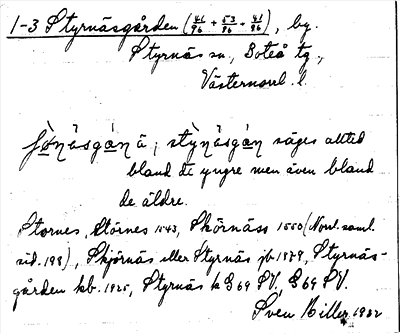 1-3 Styrnäsgården (41/96 + 53/96 + 41/96), by.
Styrnäs sn, Boteå tg.,
Västernorrl. l.
säges alltid
bland de yngre men även bland
de äldre.
Stornes, Störnes 1543, Skörnäss 1550 (Norrl. saml.
sid. 198), Skjörnäs eller Styrnäs jb. 1879, Styrnäs-
gården kb. 1925, Styrnäs k G 69 PV, G 69 PV.
Sven Biller 1932